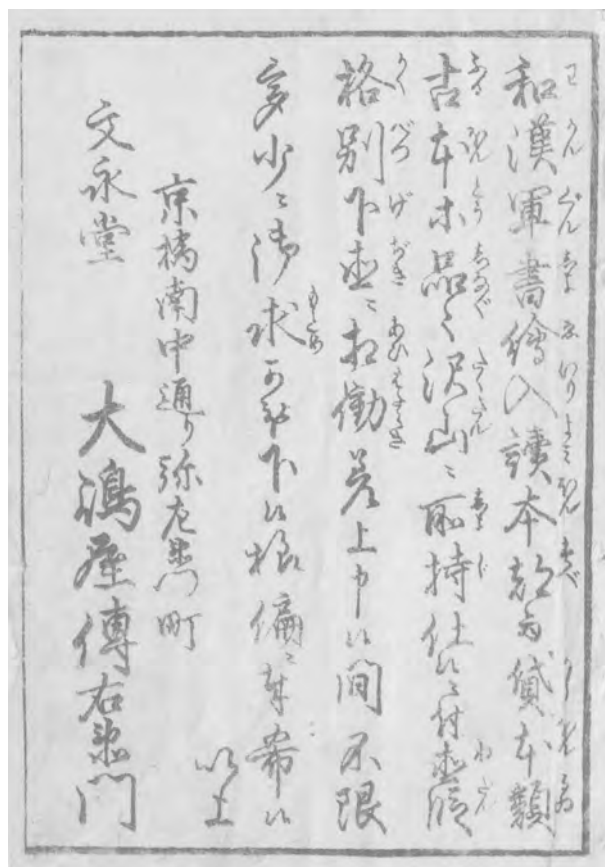 和漢軍書繪入讀本都而貸本類
古本等品々沢山ニ所持仕候ニ付直段
格別下直ニ相働差上申候間不限
多少ニ御求可被下候様偏ニ奉希候
以上
京橋南中通り弥左衛門町
文永堂 大嶋屋傳右衛門